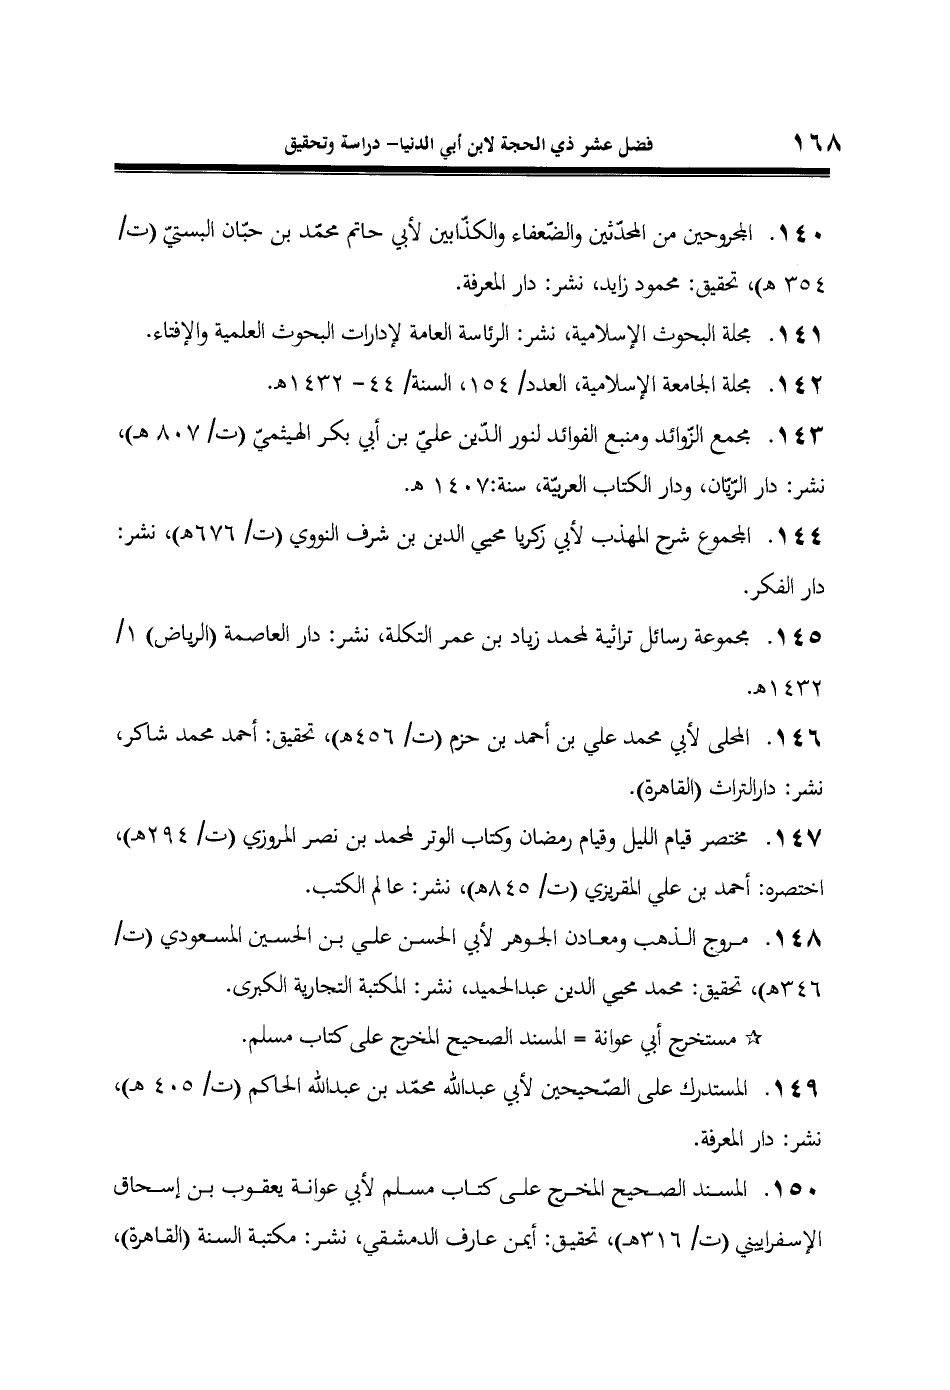 ١٦٨ فضل عشر ذي الحجة لابن أبي الدنيا- دراسة وتحقيق
١٤٠. المجروحين من المحدّثين والضّعفاء والكذّابين لأبي حاتم محمّد بن حبّان البستيّ (ت/
٣٥٤ هـ)، تحقيق: محمود زايد، نشر: دار المعرفة.
١٤١. مجلة البحوث الإسلامية، نشر: الرئاسة العامة لإدارات البحوث العلمية والإفتاء.
١٤٢. مجلة الجامعة الإسلامية، العدد/ ١٥٤، السنة/ ٤٤- ١٤٣٢هـ.
١٤٣. مجمع الزّوائد ومنبع الفوائد لنور الدّين عليّ بن أبي بكر الهيثميّ (ت/ ٨٠٧ هـ)،
نشر: دار الرّيّان، ودار الكتاب العربيّة، سنة:١٤٠٧ هـ.
١٤٤. المجموع شرح المهذب لأبي زكريا محيي الدين بن شرف النووي (ت/ ٦٧٦هـ)، نشر:
دار الفكر.
١٤٥. مجموعة رسائل تراثية لمحمد زياد بن عمر التكلة، نشر: دار العاصمة (الرياض) ١/
١٤٣٢هـ.
١٤٦. المحلى لأبي محمد علي بن أحمد بن حزم (ت/ ٤٥٦هـ)، تحقيق: أحمد محمد شاكر،
نشر: دارالتراث (القاهرة).
١٤٧. مختصر قيام الليل وقيام رمضان وكتاب الوتر لمحمد بن نصر المروزي (ت/ ٢٩٤هـ)،
اختصره: أحمد بن علي المقريزي (ت/ ٨٤٥هـ)، نشر: عالم الكتب.
١٤٨. مروج الذهب ومعادن الجوهر لأبي الحسن علي بن الحسين المسعودي (ت/
٣٤٦هـ)، تحقيق: محمد محيي الدين عبدالحميد، نشر: المكتبة التجارية الكبرى.
☆ مستخرج أبي عوانة = المسند الصحيح المخرج على كتاب مسلم.
١٤٩. المستدرك على الصّحيحين لأبي عبدالله محمّد بن عبدالله الحاكم (ت/ ٤٠٥ هـ)،
نشر: دار المعرفة.
١٥٠. المسند الصحيح المخرج على كتاب مسلم لأبي عوانة يعقوب بن إسحاق
الإسفراييني (ت/ ٣١٦هـ)، تحقيق: أيمن عارف الدمشقي، نشر: مكتبة السنة (القاهرة)،